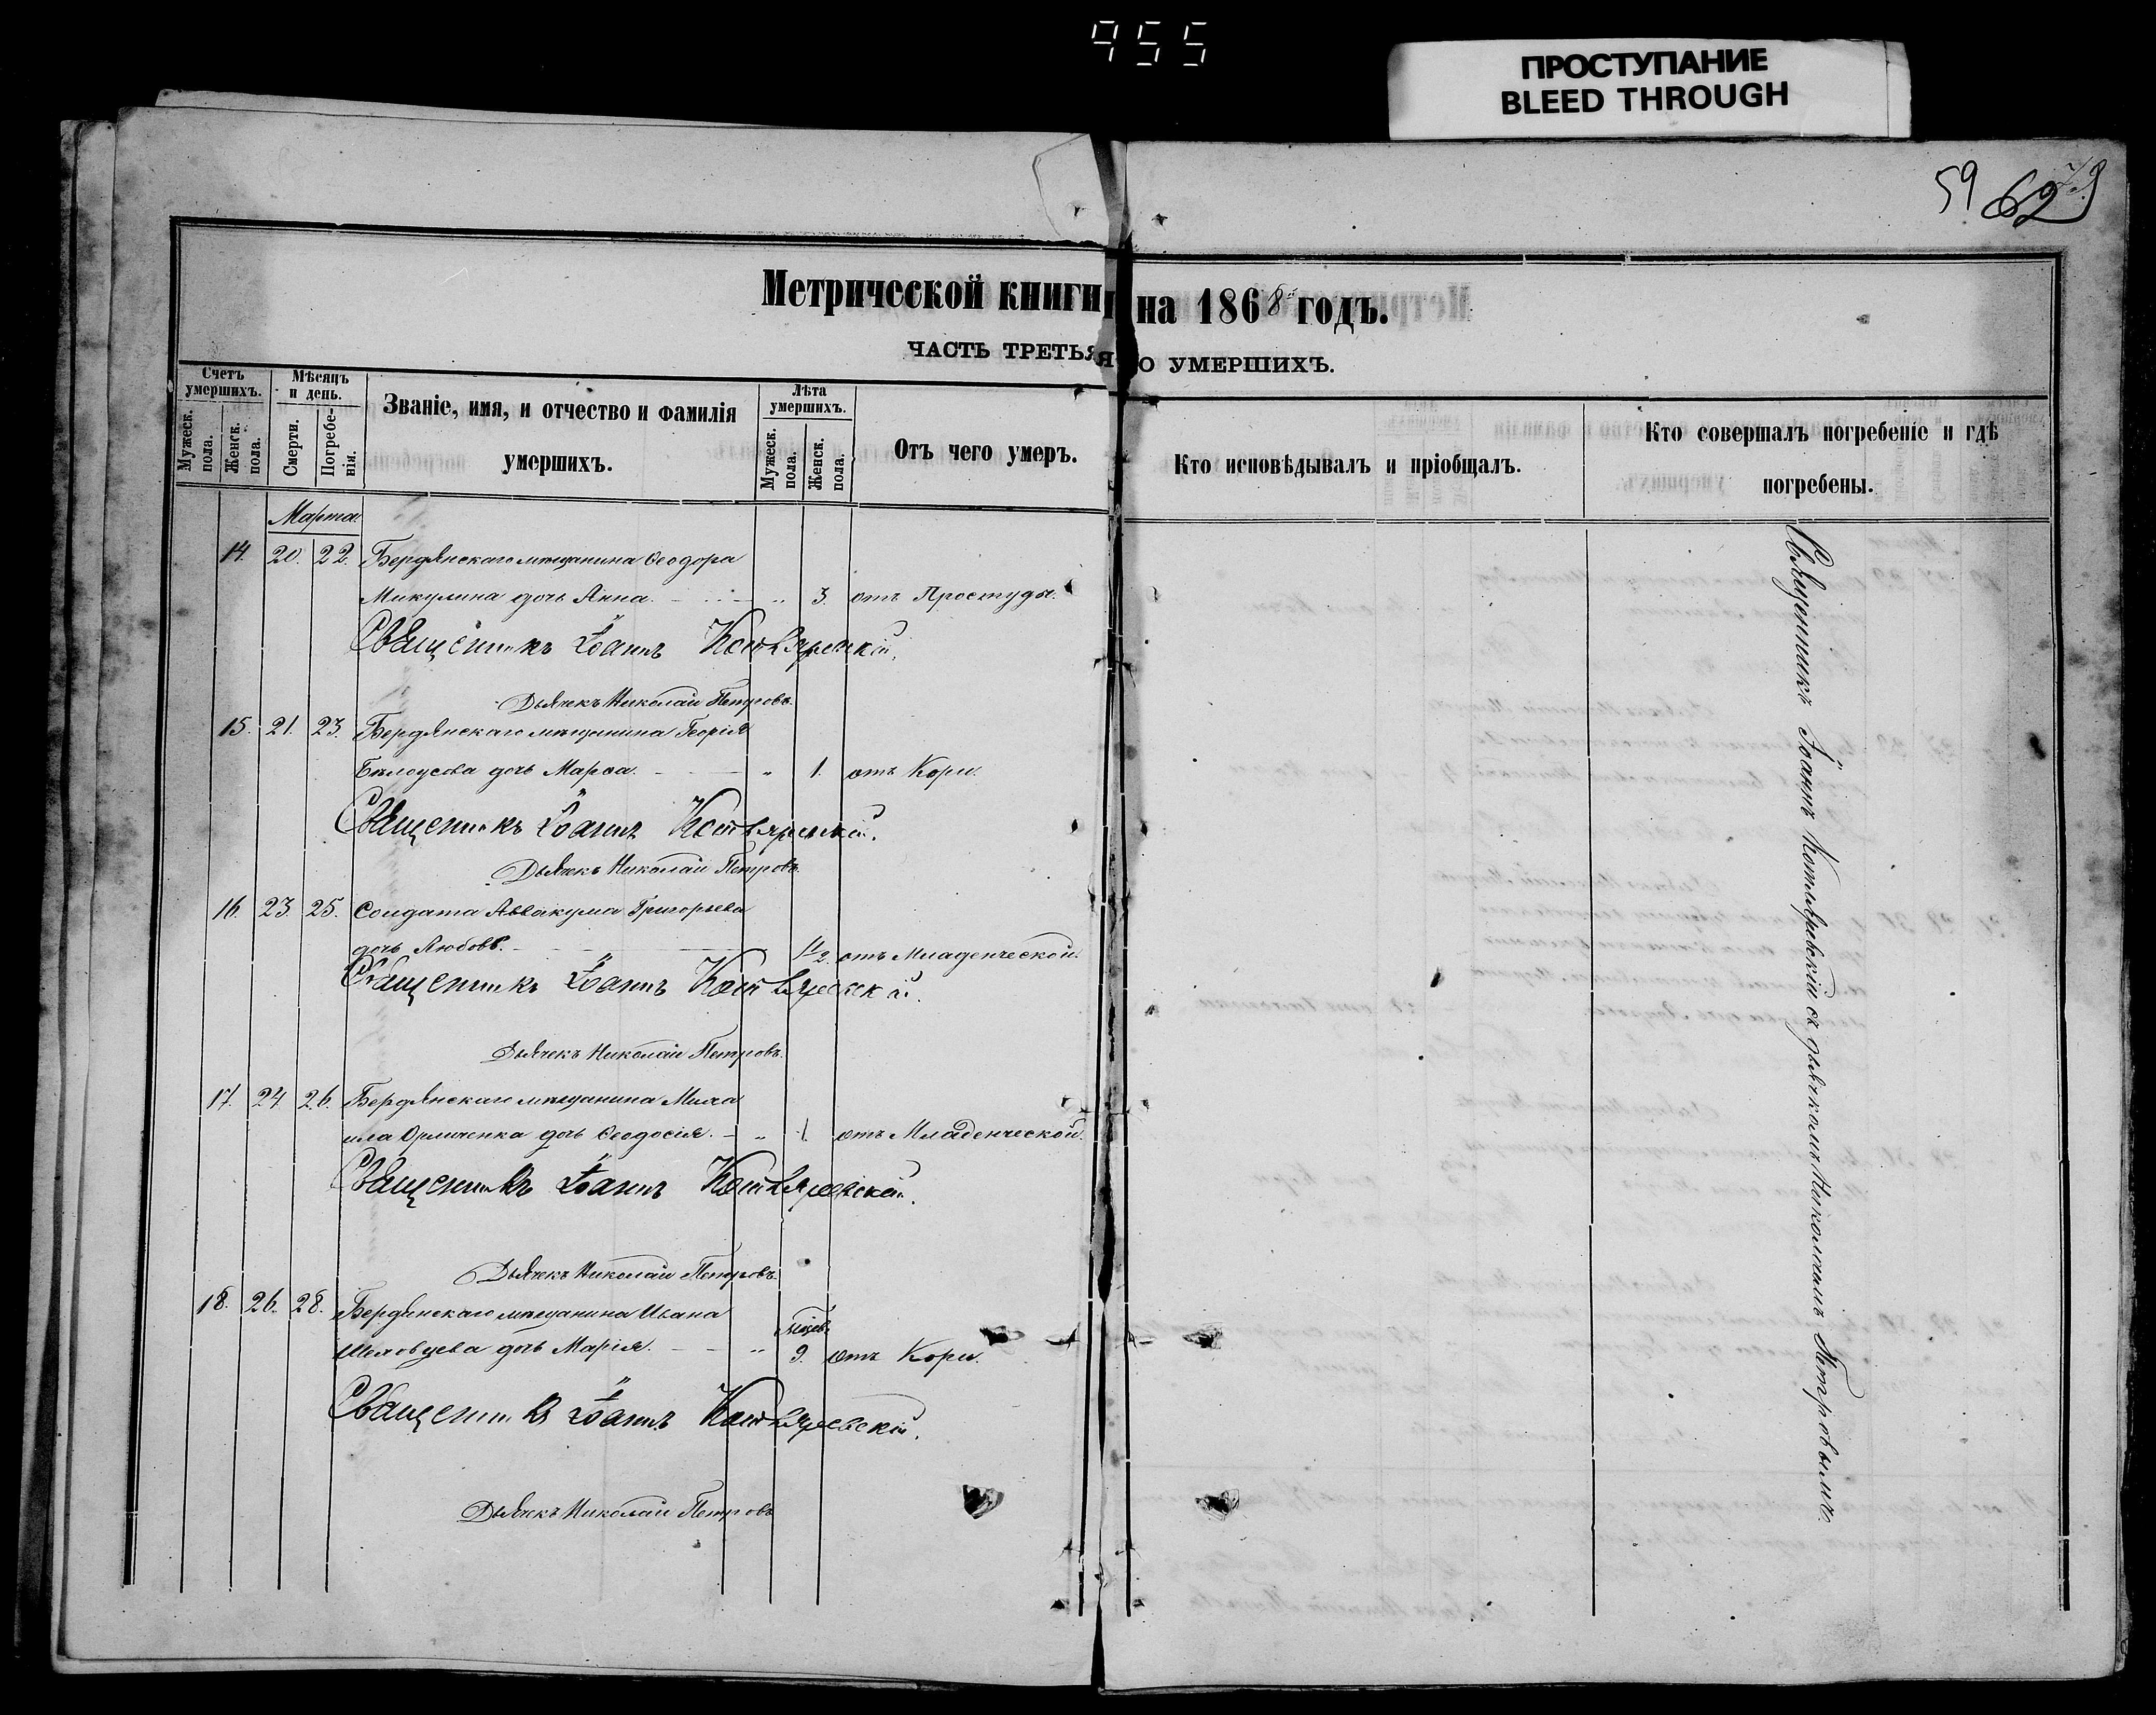 955
ПРОСТУПАНИЕ
BLEED THROUGH
59 62
Метрической книги на 1868й годъ.
ЧАСТЬ ТРЕТЬЯ О УМЕРШИХЪ.
Счетъ умершихъ.
Мужеск. пола.
Женск. пола.
Мѣсяцъ и день.
Смерти.
Погребенія.
Званіе, имя, и отчество и фамилія
умершихъ.
Лѣта умершихъ.
Мужеск. пола.
Женск. пола.
Отъ чего умеръ.
Кто исповѣдывалъ и пріобщалъ.
Кто совершалъ погребеніе и гдѣ
погребены.
Марта.
14. 20. 22. Бердянскаго мѣщанина Ѳеодора
Микулина дочь Анна. „ 3. отъ Простуды.
Священникъ Іоаннъ Котляревскій.
Дьячекъ Николай Петровъ.
15. 21. 23. Бердянскаго мѣщанина Георгія
Бѣлоусова дочь Марѳа. „ 1. отъ Кори.
Священникъ Іоаннъ Котляревскій.
Дьячекъ Николай Петровъ.
16. 23. 25. Солдата Аввакума Григорьева
дочь Любовь. 1/2. отъ Младенческой.
Священникъ Іоаннъ Котляревскій.
Дьячекъ Николай Петровъ.
17. 24. 26. Бердянскаго мѣщанина Миха
ила дочь Ѳеодосія. „ 1. отъ Младенческой.
Священникъ Іоаннъ Котляревскій.
Дьячекъ Николай Петровъ.
18. 26. 28. Бердянскаго мѣщанина Ивана
Шелковцева дочь Марія. „ 9. отъ Кори.
Священникъ Іоаннъ Котляревскій.
Дьячекъ Николай Петровъ
Священникъ Іоаннъ Котляревскій съ дьячкомъ Николаемъ Петровымъ.